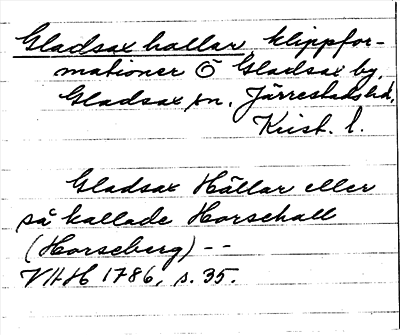 Gladsax hallar, klippfor-
mationer Ö Gladsax by,
Gladsax sn. Järrestads hd,
Krist. l.
Gladsax Hällar eller
så kallade Horsehall
(Horseberg) --
VHH 1786, s. 35.